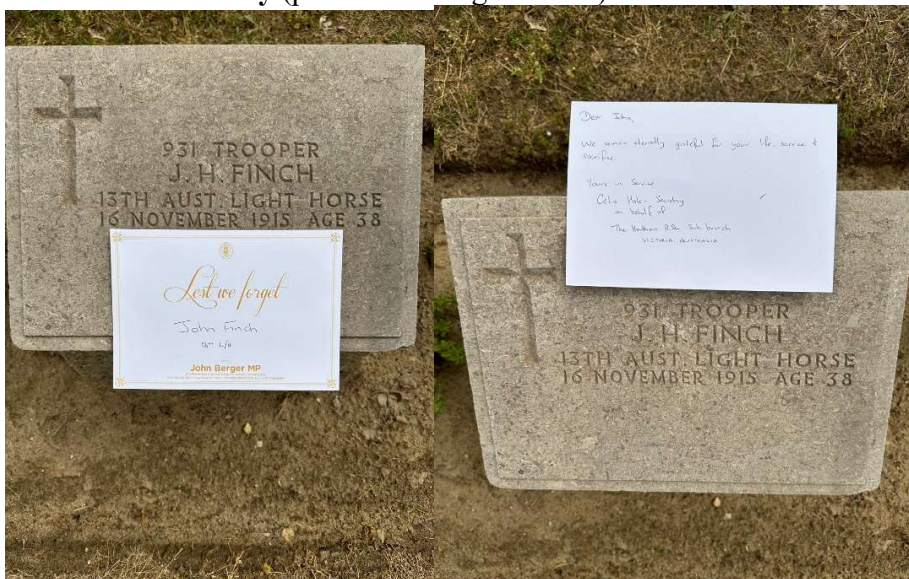 931 TROOPER
J. H. FINCH
13TH AUST. LIGHT HORSE
16 NOVEMBER 1915 AGE 38
Lest we forget
John Finch
13TH L/H
John Berger MP
Dear John,
We remain eternally grateful for your life, service &
sacrifice
Yours in Service
Celia Hole - Secretary
on behalf of
The RSL Sub branch
VICTORIA, AUSTRALIA
931 TROOPER
J. H. FINCH
13TH AUST. LIGHT HORSE
16 NOVEMBER 1915 AGE 38